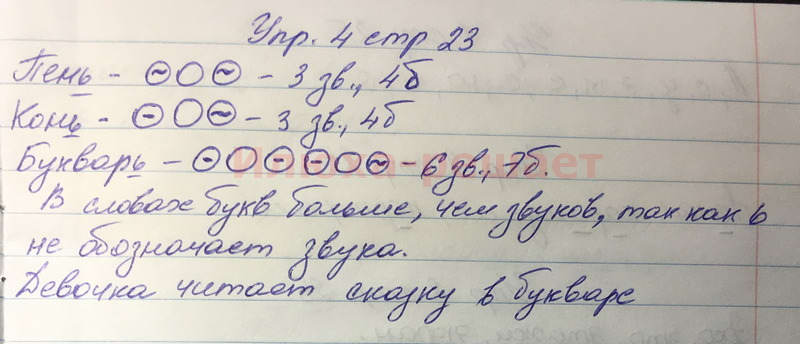 Упр. 4 стр 23
Пень - - 3 зв., 4б
Конь - - 3 зв., 4б
Букварь - - 6 зв., 7б.
Илюха-решает
В словах букв больше, чем звуков, так как ь
не обозначает звука.
Девочка читает сказку в букваре